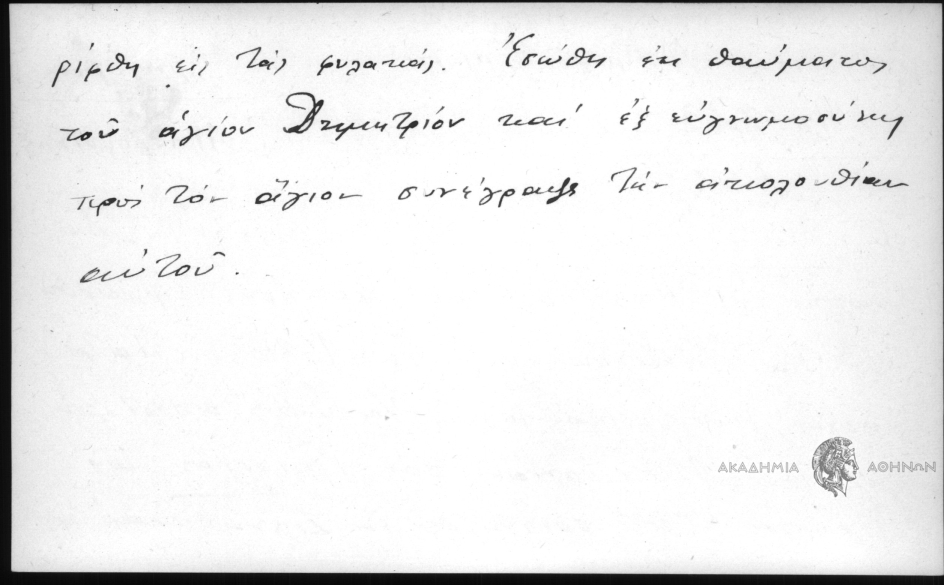 ρίφθη εἰς τὰς φυλακάς. Ἐσώθη ἐκ θαύματος
τοῦ ἁγίου Δημητρίου καὶ ἐξ εὐγνωμοσύνης
πρὸς τὸν ἅγιον συνέγραψε τὴν ἀκολουθίαν
αὐτοῦ.
ΑΚΑΔΗΜΙΑ ΑΘΗΝΩΝ